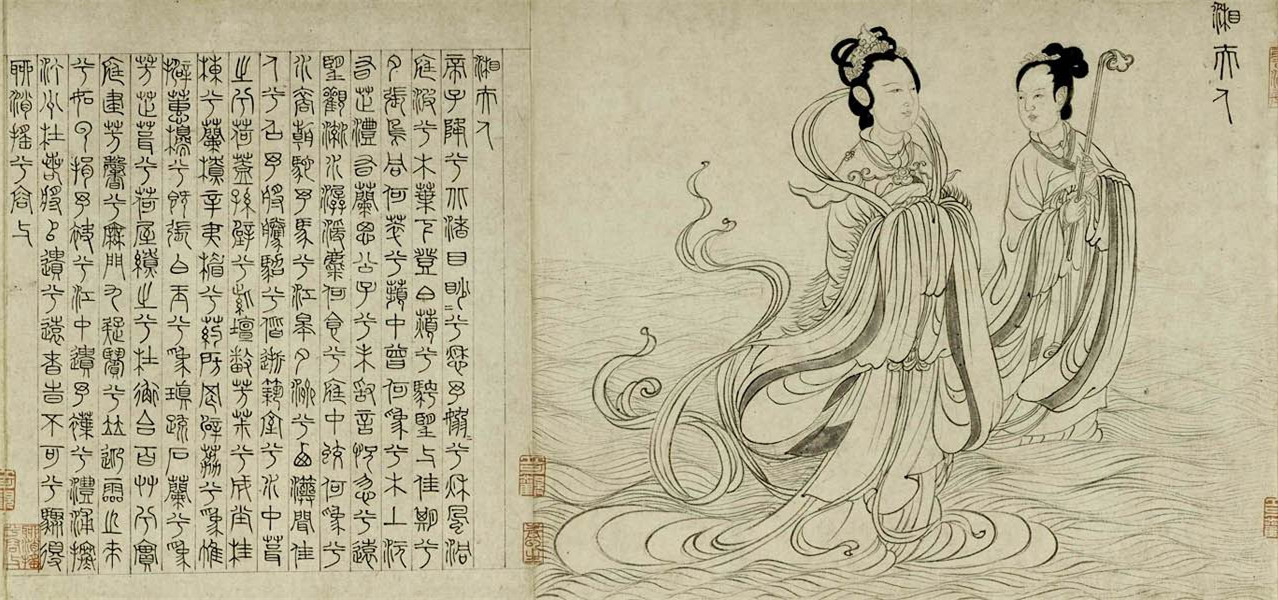 湘夫人
湘夫人
帝子降兮北渚目眇〻兮愁予嫋〻兮秋風洞
庭波兮木葉下登白薠兮騁望与佳期兮
夕張鳥何萃兮蘋中罾何為兮木上沅
有芷澧有蘭思公子兮未敢言怳忽兮遠
望觀流水潺湲麋何食兮庭中蛟何為兮
水裔朝馳予馬兮江皋夕濟兮西澨聞佳
人兮召予將騰駕兮偕逝築室兮水中葺
之兮荷蓋蓀壁兮紫壇播芳椒兮成堂桂
棟兮蘭橑辛夷楣兮葯房罔薜荔兮為帷
擗蕙櫋兮既張白玉兮為瑱疏石蘭兮為
芳芷葺兮荷屋繚之兮杜衡合百艸兮實
庭建芳馨兮廡門九疑繽兮並迎靈之來
兮如雲捐予袂兮江中遺予褋兮澧浦搴
汀洲杜若將以遺兮遠者時不可兮驟得
聊逍遙兮容与